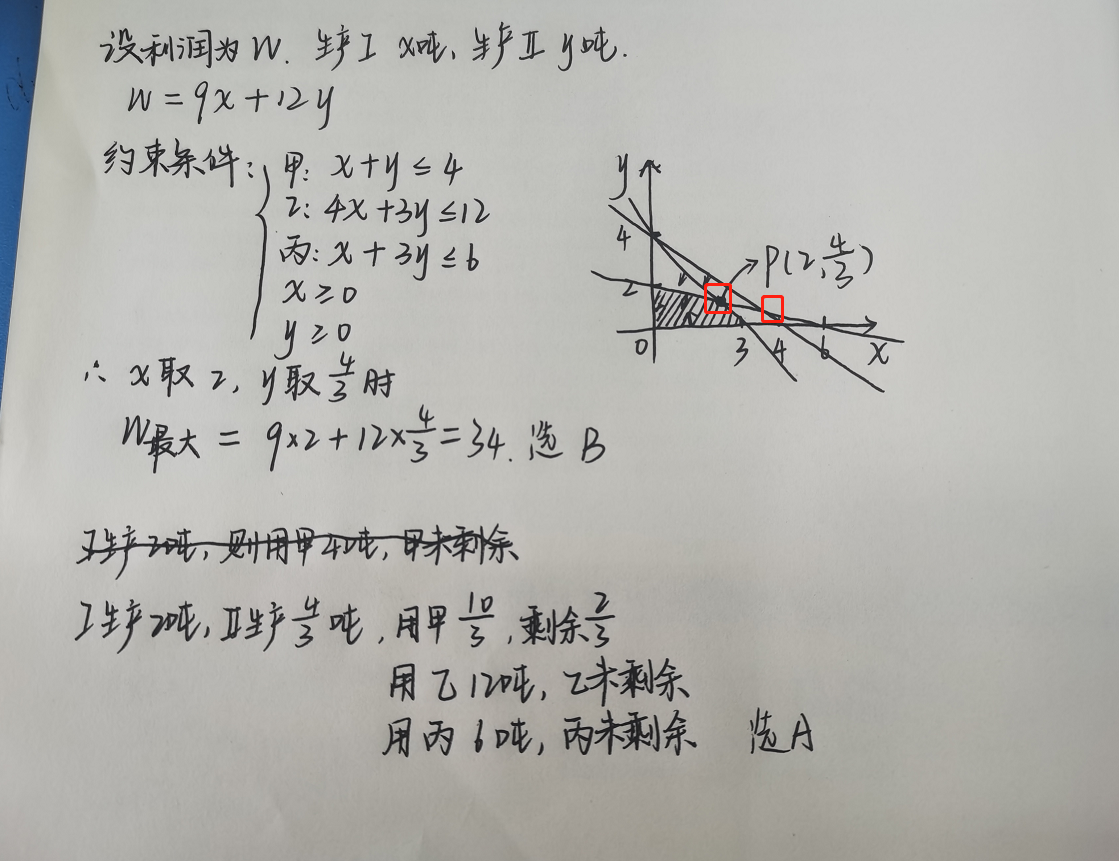 设利润为W. 生产Ⅰ x吨, 生产Ⅱ y吨.
W=9x+12y
约束条件:
甲: x+y≤4
乙: 4x+3y≤12
丙: x+3y≤6
x≥0
y≥0
y
4
2
0
3
4
6
x
P(2,4/3)
∴ x取2, y取4/3时
W最大 = 9×2+12×4/3=34. 选B
Ⅰ生产2吨, 则用甲4吨, 甲未剩余
Ⅰ生产2吨, Ⅱ生产4/3吨, 用甲10/3, 剩余2/3
用乙12吨, 乙未剩余
用丙6吨, 丙未剩余 选A